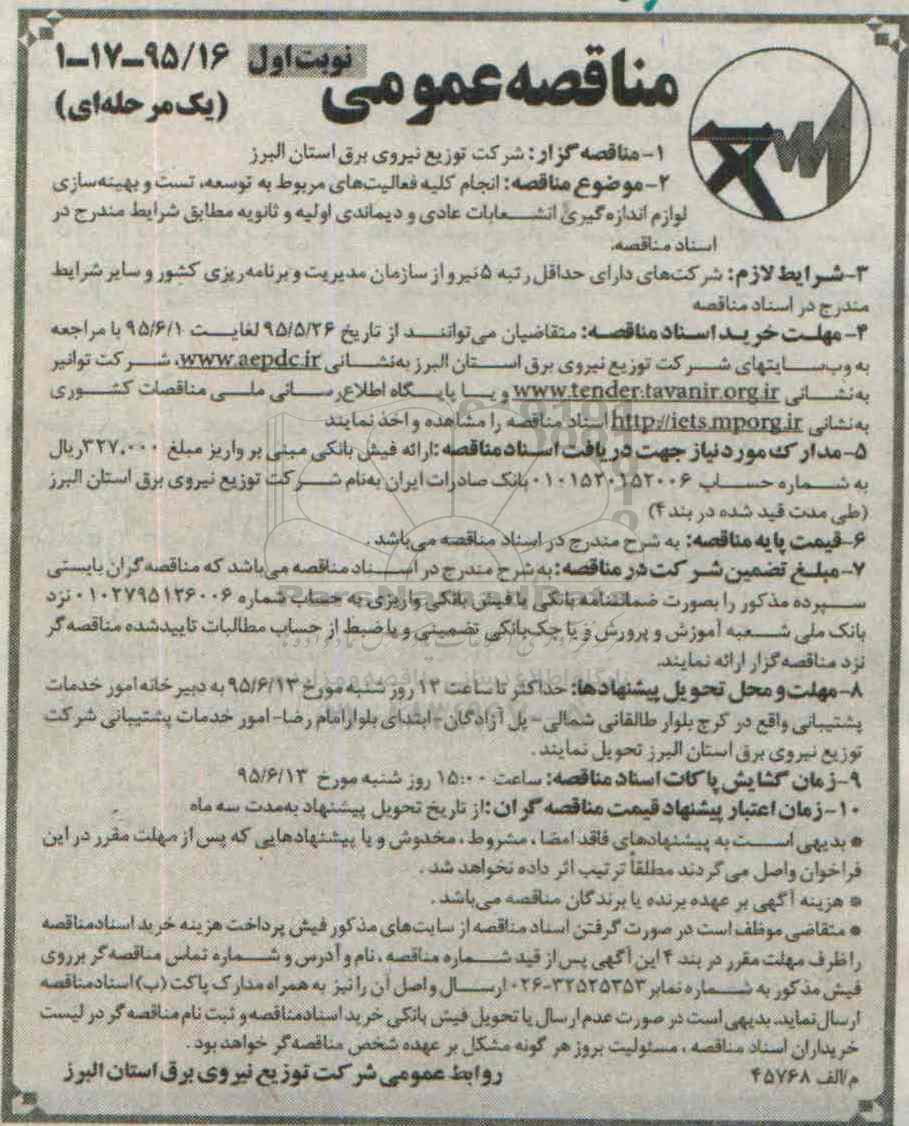 مناقصه عمومی نوبت اول ۹۵/۱۶-۱۷-۱
(یک مرحله‌ای)
۱-مناقصه گزار: شرکت توزیع نیروی برق استان البرز
۲-موضوع مناقصه: انجام کلیه فعالیت‌های مربوط به توسعه، تست و بهینه‌سازی
لوازم اندازه‌گیری انشعابات عادی و دیماندی اولیه و ثانویه مطابق شرایط مندرج در
اسناد مناقصه.
۳-شرایط لازم: شرکت‌های دارای حداقل رتبه ۵ نیرو از سازمان مدیریت و برنامه‌ریزی کشور و سایر شرایط
مندرج در اسناد مناقصه
۴- مهلت خرید اسناد مناقصه: متقاضیان می‌توانند از تاریخ ۹۵/۵/۲۶ لغایت ۹۵/۶/۱ با مراجعه
به وب‌سایتهای شرکت توزیع نیروی برق استان البرز به‌نشانی www.aepdc.ir، شرکت توانیر
به‌نشانی www.tender.tavanir.org.ir و یا پایگاه اطلاع‌رسانی ملی مناقصات کشوری
به‌نشانی http://iets.mporg.ir اسناد مناقصه را مشاهده و اخذ نمایند
۵-مدارک مورد نیاز جهت دریافت اسناد مناقصه: ارائه فیش بانکی مبنی بر واریز مبلغ ۳۲۷,۰۰۰ ریال
به شماره حساب ۰۱۰۱۵۲۰۱۵۲۰۰۶ بانک صادرات ایران به‌نام شرکت توزیع نیروی برق استان البرز
(طی مدت قید شده در بند ۴)
۶-قیمت پایه مناقصه: به شرح مندرج در اسناد مناقصه می‌باشد.
۷-مبلغ تضمین شرکت در مناقصه: به شرح مندرج در اسناد مناقصه می‌باشد که مناقصه‌گران بایستی
سپرده مذکور را بصورت ضمانتنامه بانکی یا فیش بانکی واریزی به حساب شماره ۰۱۰۲۷۹۵۱۲۶۰۰۶ نزد
بانک ملی شعبه آموزش و پرورش و یا چک بانکی تضمینی و یا ضبط از حساب مطالبات تاییدشده مناقصه‌گر
نزد مناقصه‌گزار ارائه نمایند.
۸-مهلت و محل تحویل پیشنهادها: حداکثر تا ساعت ۱۲ روز شنبه مورخ ۹۵/۶/۱۳ به دبیرخانه امور خدمات
پشتیبانی واقع در کرج بلوار طالقانی شمالی- پل آزادگان-ابتدای بلوار امام رضا- امور خدمات پشتیبانی شرکت
توزیع نیروی برق استان البرز تحویل نمایند.
۹-زمان گشایش پاکات اسناد مناقصه: ساعت ۱۵:۰۰ روز شنبه مورخ ۹۵/۶/۱۳
۱۰-زمان اعتبار پیشنهاد قیمت مناقصه گران: از تاریخ تحویل پیشنهاد به‌مدت سه ماه
* بدیهی است به پیشنهادهای فاقد امضا، مشروط، مخدوش و یا پیشنهادهایی که پس از مهلت مقرر در این
فراخوان واصل می‌گردند مطلقاً ترتیب اثر داده نخواهد شد.
* هزینه آگهی بر عهده برنده یا برندگان مناقصه می‌باشد.
* متقاضی موظف است در صورت گرفتن اسناد مناقصه از سایت‌های مذکور فیش پرداخت هزینه خرید اسناد مناقصه
را ظرف مهلت مقرر در بند ۴ این آگهی پس از قید شماره مناقصه، نام و آدرس و شماره تماس مناقصه‌گر برروی
فیش مذکور به شماره نمابر ۳۲۵۲۵۳۵۳-۰۲۶ ارسال و اصل آن را نیز به همراه مدارک پاکت (ب) اسناد مناقصه
ارسال نماید. بدیهی است در صورت عدم ارسال یا تحویل فیش بانکی خرید اسناد مناقصه و ثبت نام مناقصه‌گر در لیست
خریداران اسناد مناقصه، مسئولیت بروز هر گونه مشکل بر عهده شخص مناقصه‌گر خواهد بود.
م/الف ۴۵۷۶۸ روابط عمومی شرکت توزیع نیروی برق استان البرز